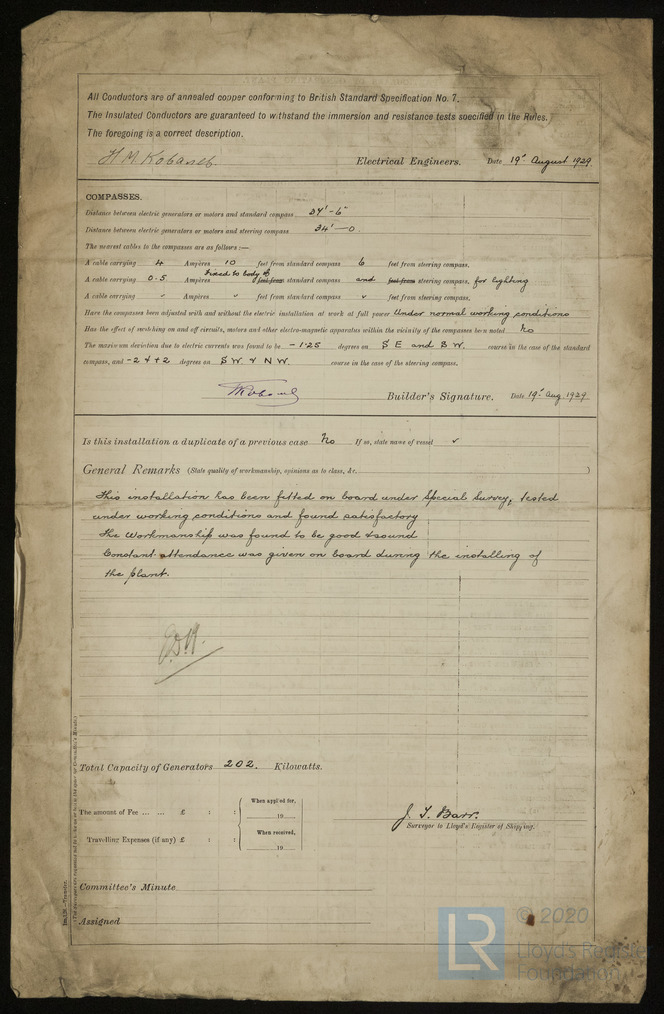 All Conductors are of annealed copper conforming to British Standard Specification No. 7.
The Insulated Conductors are guaranteed to withstand the immersion and resistance tests specified in the Rules.
The foregoing is a correct description.
Electrical Engineers. Date 19th August 1929
COMPASSES.
Distance between electric generators or motors and standard compass 34'-6"
Distance between electric generators or motors and steering compass 34'-0
The nearest cables to the compasses are as follows:—
A cable carrying 4 Ampères 10 feet from standard compass 6 feet from steering compass.
A cable carrying 0.5 Ampères fixed to body of feet from standard compass and feet from steering compass. for lighting
A cable carrying Ampères feet from standard compass feet from steering compass.
Have the compasses been adjusted with and without the electric installation at work at full power Under normal working conditions
Has the effect of switching on and off circuits, motors and other electro-magnetic apparatus within the vicinity of the compasses been noted No
The maximum deviation due to electric currents was found to be -1.25 degrees on S E and S W. course in the case of the standard
compass, and -2 & +2 degrees on S W. & N W. course in the case of the steering compass.
Builder's Signature. Date 19th Aug 1929
Is this installation a duplicate of a previous case No If so, state name of vessel
General Remarks (State quality of workmanship, opinions as to class, &c. )
This installation has been fitted on board under Special Survey, tested
under working conditions and found satisfactory
The Workmanship was found to be good & sound
Constant attendance was given on board during the installing of
the plant.
Total Capacity of Generators 202. Kilowatts.
The amount of Fee ... ... £ : : When applied for, 19
Travelling Expenses (if any) £ : : When received, 19
J. T. Barr.
Surveyor to Lloyd's Register of Shipping.
Committee's Minute
Assigned
© 2020
Lloyd's Register
Foundation
LR